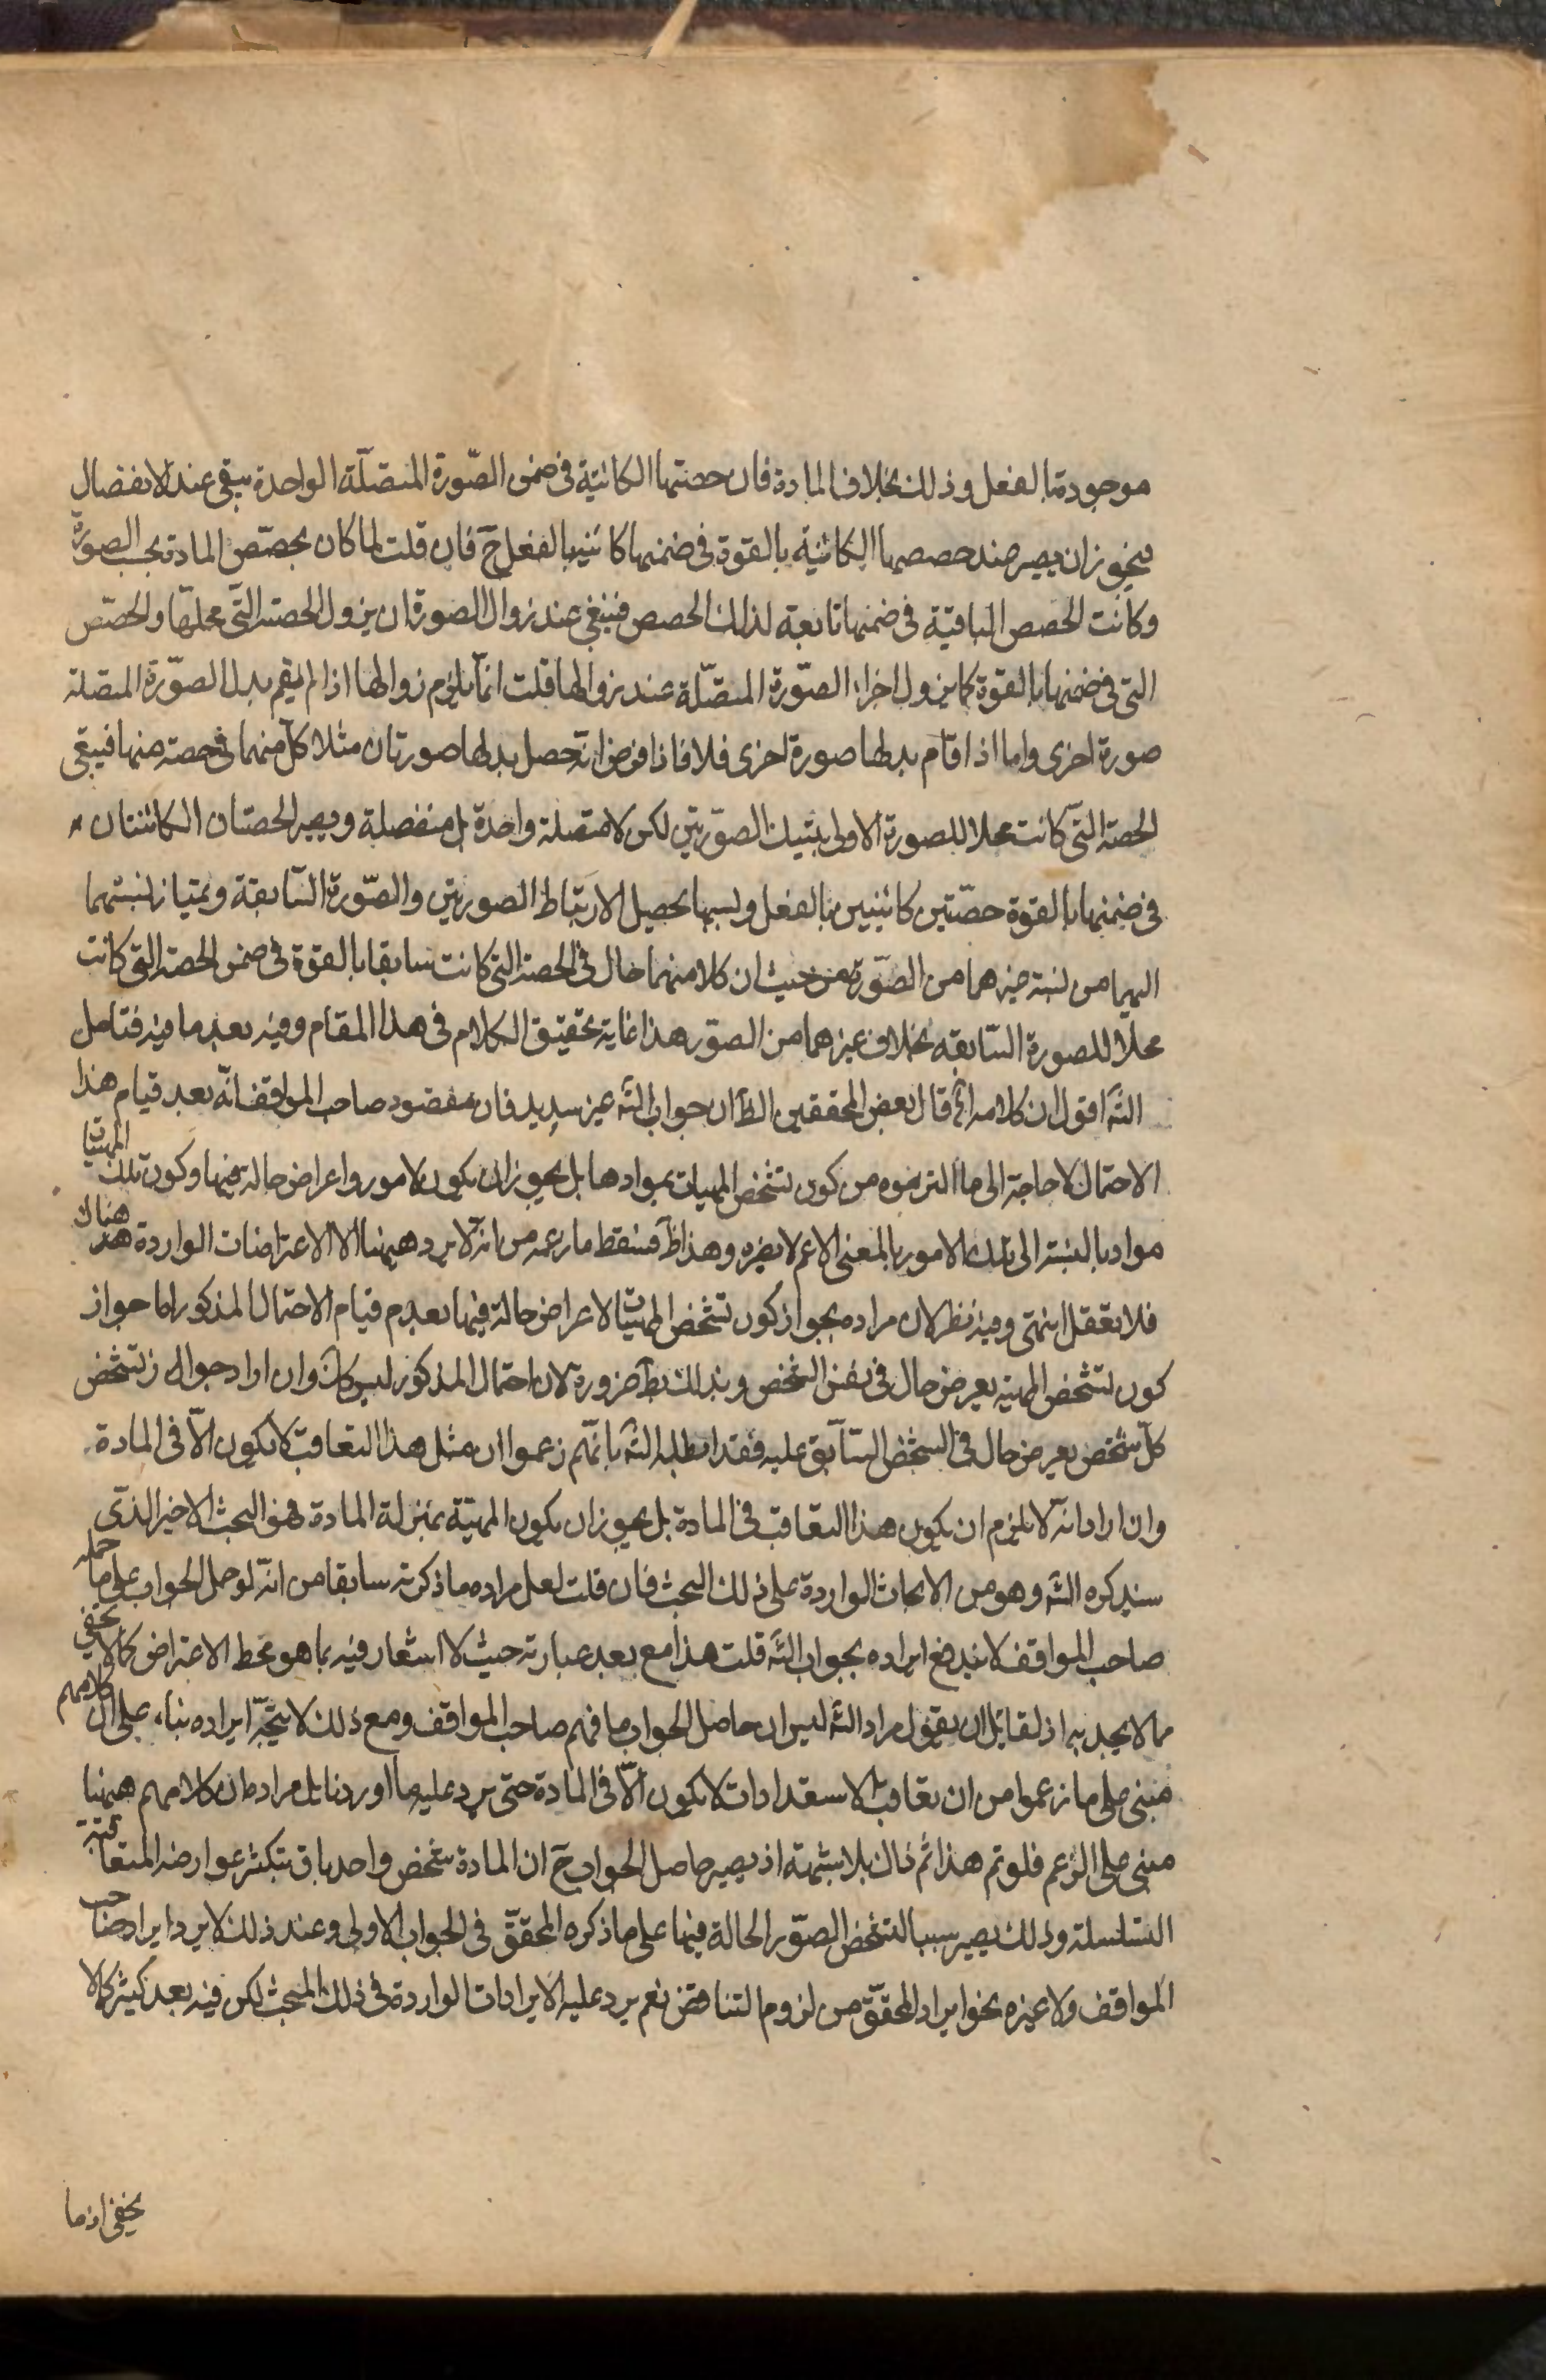 موجودة بالفعل وذلك بخلاف المادة فان حصتها الكائنة فى ضمن الصّورة المتصلّة الواحدة يبقى عند الانفصال
فيجوز ان يصير عند حصصها الكائنة بالقوة فى ضمنها كائنة بالفعل حَ فان قلت لما كان تحصّص المادة بحسب الصورة
وكانت الحصص الباقية فى ضمنها تابعة لذلك الحصص فينبغى عند زوال الصورة ان يزول الحصة التى محلّها والحصّص
التى فى ضمنها بالقوة كما يزول اجزاء الصّورة المتصّلة عند زوالها قلت انّما يلزم زوالها اذا لم يقم بدل الصوّرة المتصّلة
صورة اخرى واما اذا قام بدلها صورة اخرى فلا فاذا فرض انّه حصل بدلها صورتان مثلا كلّ منهما فى حصة منها فيبقى
الحصة التى كانت محلا للصورة الاولى بتينك الصوّرتين لكن لا متصّلة واحدة بل منفصلة ويصير الحصتان الكائنتان
فى ضمنها بالقوة حصّتين كائنتين بالفعل وبسببها يحصل الارتباط الصورتين والصّورة السّابقة ويمتياز نسبتهما
اليها من نسبة غيرهما من الصّورة من حيث ان كلا منهما حال فى الحصة التى كانت سابقا بالقوة فى ضمن الحصة التى كانت
محلا للصورة السّابقة بخلاف غيرهما من الصوّر هذا غاية تحقيق الكلام فى هذا المقام وفيه بعد ما فيه فتامل
الشَه اقول ان كلامه اه قال بعض المحققين الظَ ان جواب الشَه غير سديد فان مقصود صاحب المواقف انّه بعد قيام هذا
الاحتمال لا حاجة الى ما التزموه من كون تشخض المهيات بموادها بل يجوز ان يكون لامور واعراض حالة فيها وكون تلك المهيّات
مواد بالنسبة الى تلك الامور بالمعنى الاعم لا يضره وهذا ظَ فسقط ما زعمه من انه لا يرد ههنا الا الاعتراضات الواردة هناك
فلا تغفل انتهى وفيه نظر لان مراده بجواز كون تشخض المهيّات لاعراض حالة فيها بعدم قيام الاحتمال المذكور اما جواز
كون تشخض المهية بعرض حال فى نفس الشخص وبذلك بطَ ضرورة لان احتمال المذكور ليس كَك وان اراد جواز تشخض
كلّ شخص بعرض حال فى الشخض السّابق عليه فقد ابطله الشَه بانهّم زعموا ان مثل هذا التعاقب لا يكون الّا فى المادة
وان اراد انّه لا يلزم ان يكون هذا التعاقب فى المادة بل يجوز ان يكون المهيّة بمنزلة المادة فهو البحث الاخير الذى
سيذكره الشَه وهو من الابحاث الواردة على ذلك البحث فان قلت لعل مراده ما ذكرته سابقا من انّه لو حمل الجواب على ما حمله
صاحب المواقف لا يندفع ايراده بجواب الشَه قلت هذا مع بعد عبارته حيث لا اشعار فيه بما هو محط الاعتراض كما لا يخفى
مما لا يجد به اذ لقائل ان يقول مراد الشَه ليس ان حاصل الجواب ما فهم صاحب المواقف ومع ذلك لا يتجّه ايراده بناء على ان كلامهم
مبنى على ما زعموا من ان تعاقب الاستعدادات لا يكون الّا فى المادة حتى يرد عليه ما اوردنا بل مراده ان كلامهم ههنا
مبنى على الزعم فلو تم هذا ثم ذاك بلا شبهة اذ يصير حاصل الجواب حَ ان المادة شخض واحد باق بتكثر عوارضه المتعاقبة
المتسلسلة وذلك يصير سببا لتشخض الصوّر الحالة فيها على ما ذكره المحقّق فى الجواب الاولى وعند ذلك لا يرد ايراد صاحب
المواقف ولا غيره نحو ايراد المحقّق من لزوم التناقض نعم يرد عليه الايرادات الواردة فى ذلك المبحث لكن فيه بعد كثير كما لا
يخفى اذ ما